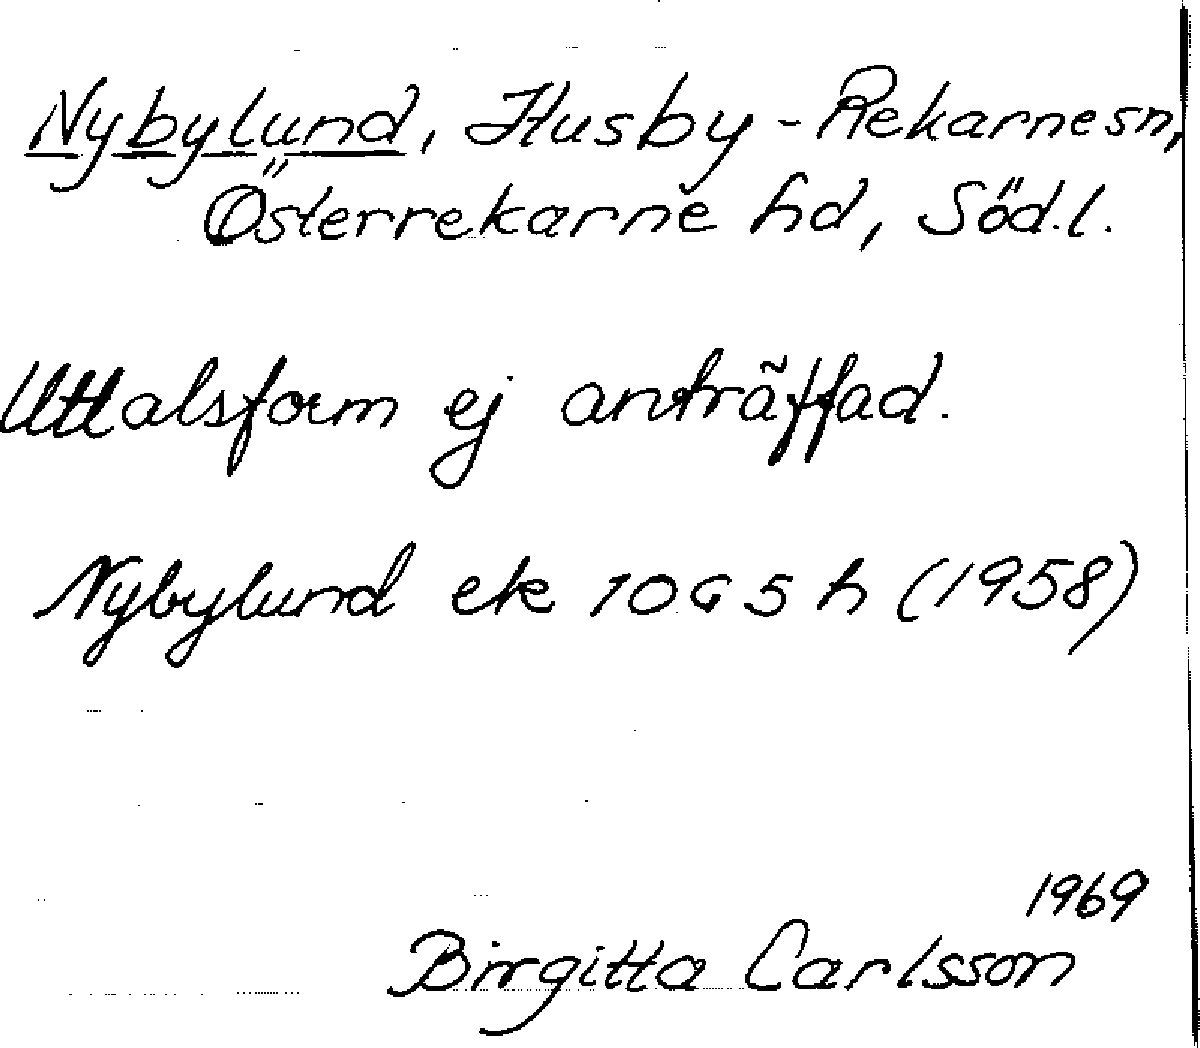 Nybylund, Husby-Rekarne sn,
Österrekarne hd, Söd.l.
Uttalsform ej anträffad.
Nybylund ek 10G5h (1958)
1969
Birgitta Carlsson